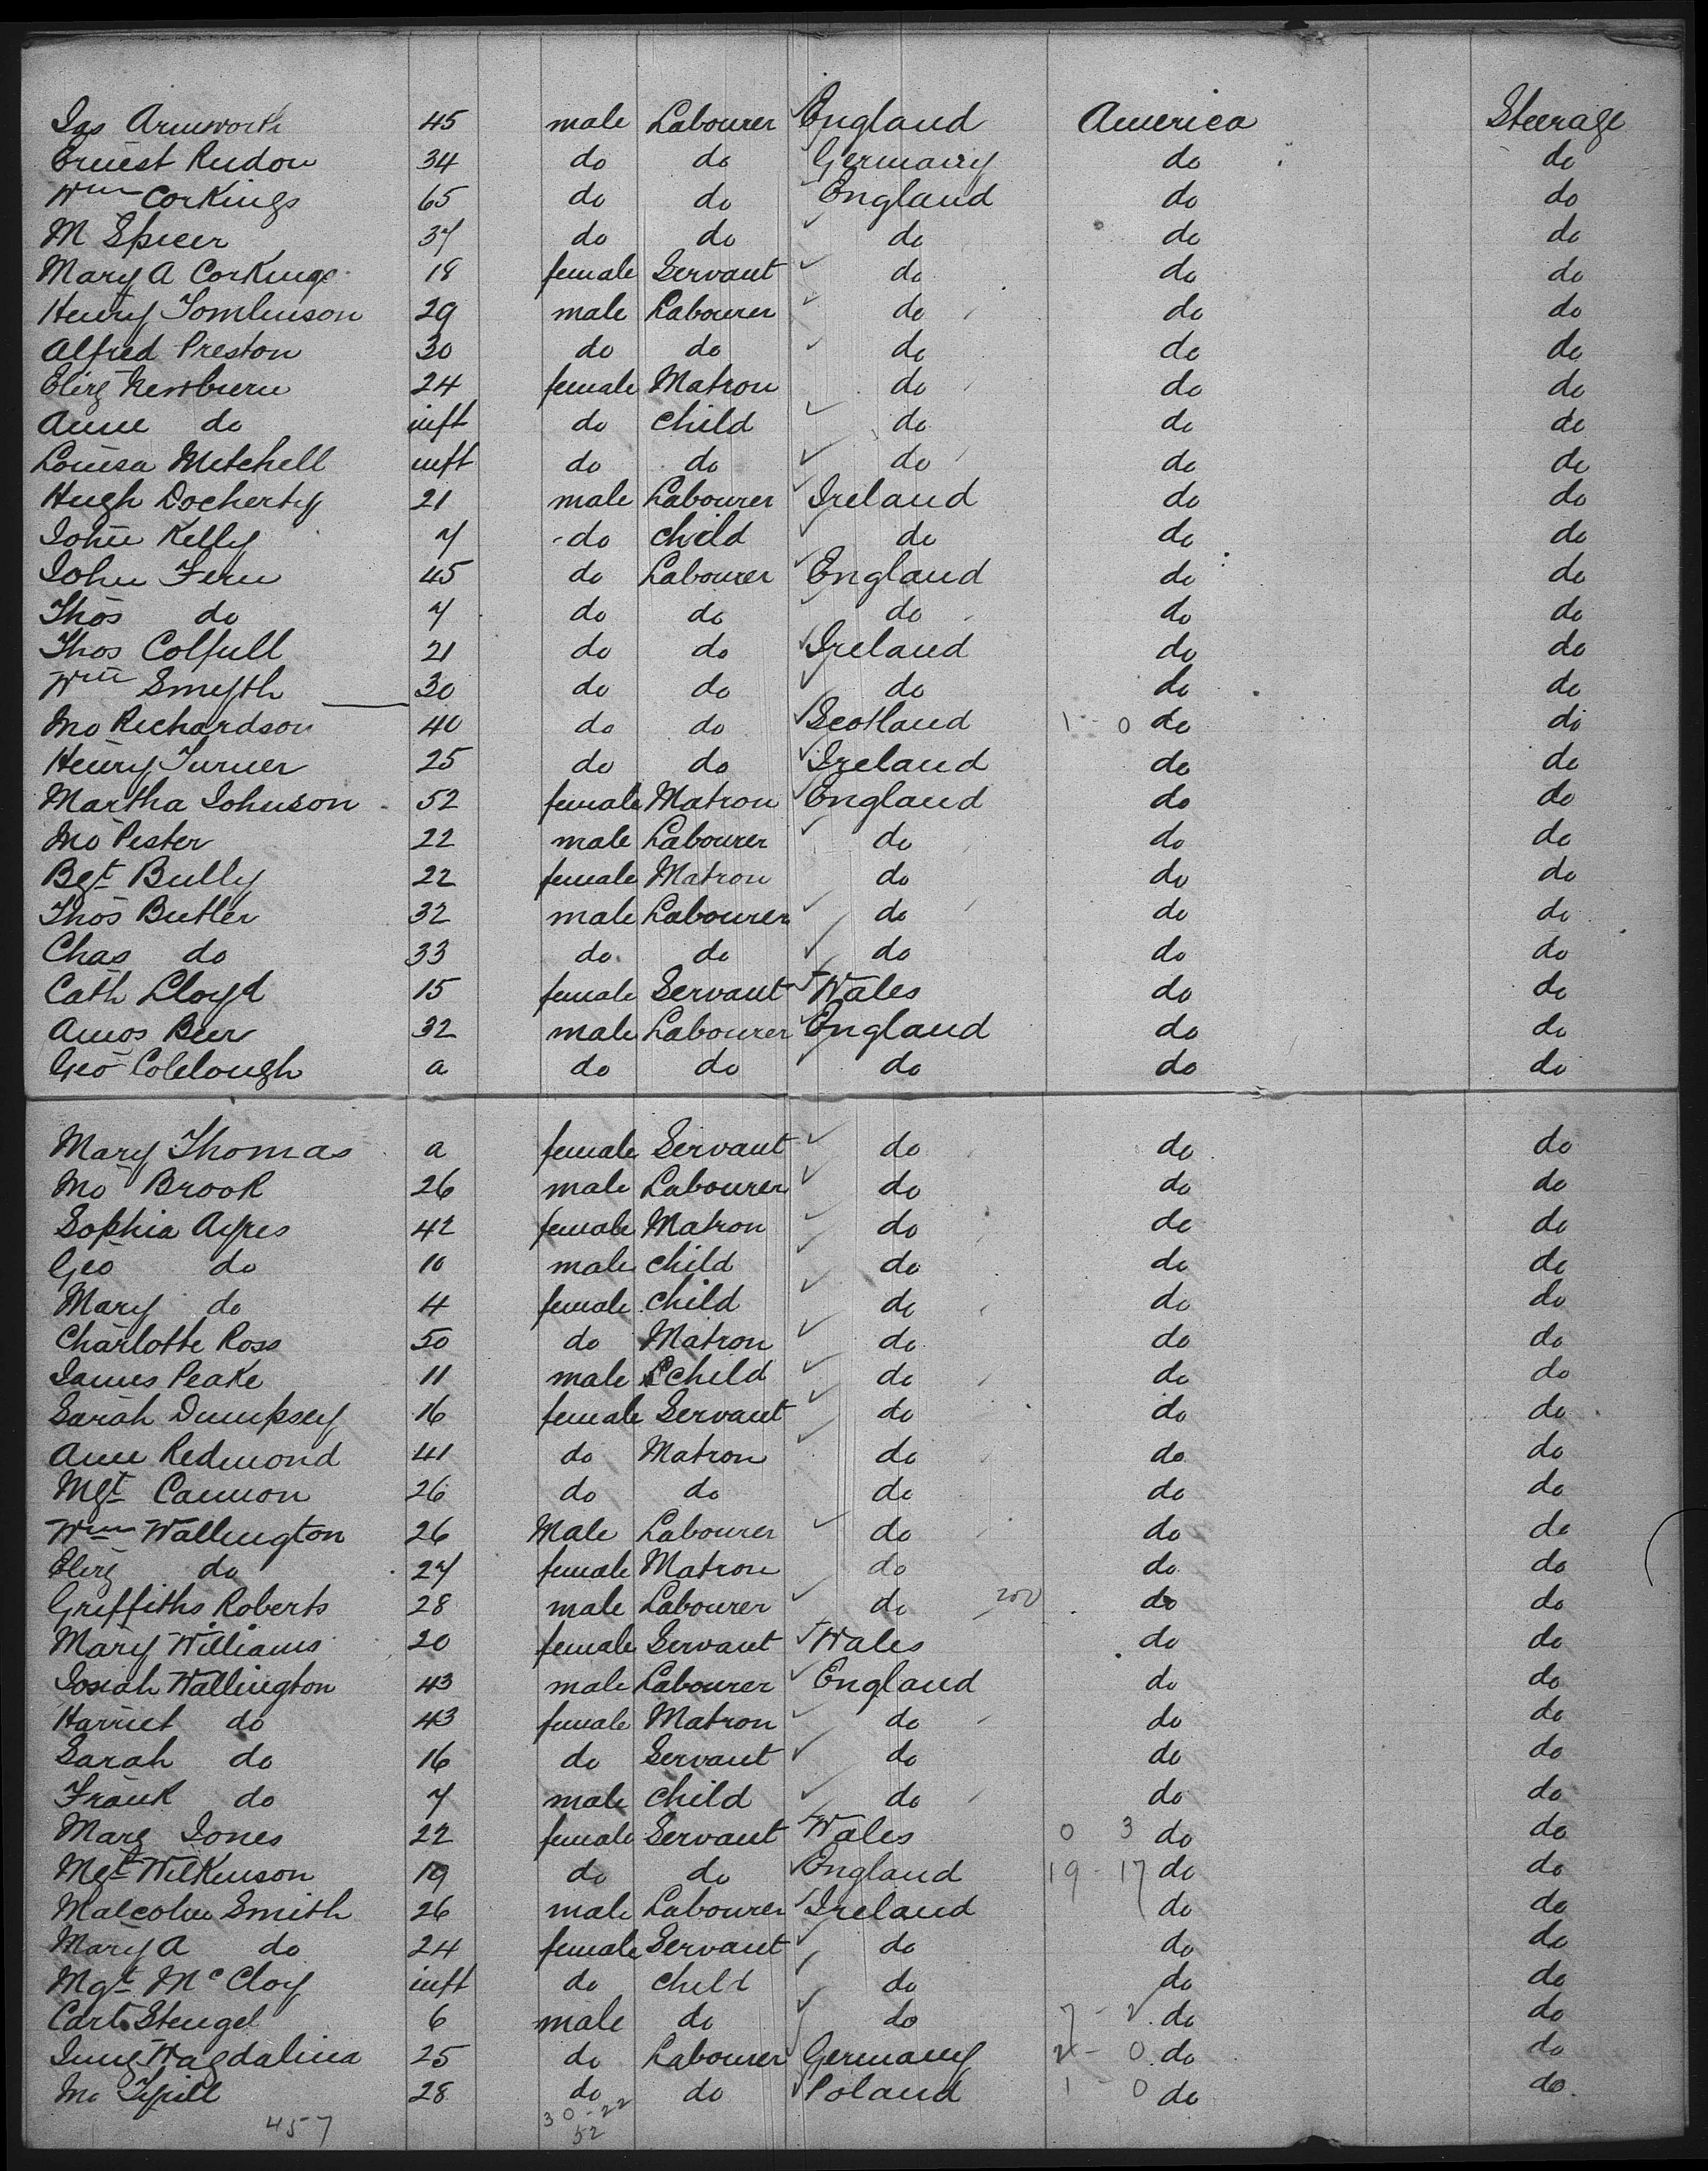 Jas Armworth 45 male Labourer England America Steerage
Ernest Rudow 34 do do Germany do do
Wm Corkings 65 do do England do do
M Spicer 37 do do do do do
Mary A Corkings 18 female Servant do do do
Henry Tomlinson 29 male Labourer do do do
Alfred Preston 30 do do do do do
Eliz Newburn 24 female Matron do do do
Anne do inft do child do do do
Louisa Mitchell inft do do do do do
Hugh Docherty 21 male Labourer Ireland do do
John Kelly 7 do child do do do
John Fern 45 do Labourer England do do
Thos do 7 do do do do do
Thos Colfull 21 do do Ireland do do
Wm Smyth 30 do do do do do
Jno Richardson 40 do do Scotland 1 - 0 do do
Henry Turner 25 do do Ireland do do
Martha Johnson 52 female Matron England do do
Jno Pester 22 male Labourer do do do
Bgt Bully 22 female Matron do do do
Thos Butler 32 male Labourer do do do
Chas do 33 do do do do do
Cath Lloyd 15 female Servant Wales do do
Amos Beer 32 male Labourer England do do
Geo Colclough a do do do do do
Mary Thomas a female Servant do do do
Jno Brook 26 male Labourer do do do
Sophia Ayres 42 female Matron do do do
Geo do 10 male child do do do
Mary do 4 female child do do do
Charlotte Ross 50 do Matron do do do
James Peake 11 male child do do do
Sarah Dumpsey 16 female Servant do do do
Ann Redmond 41 do Matron do do do
Mgt Cannon 26 do do do do do
Wm Wallington 26 Male Labourer do do do
Eliz do 27 female Matron do do do
Griffiths Roberts 28 male Labourer do 200 do do
Mary Williams 20 female Servant Wales do do
Josiah Wallington 43 male Labourer England do do
Harriet do 43 female Matron do do do
Sarah do 16 do Servant do do do
Frank do 7 male child do do do
Marg Jones 22 female Servant Wales 0 3 do do
Mgt Wilkinson 19 do do England 19 - 17 do do
Malcolm Smith 26 male Labourer Ireland do do
Mary A do 24 female Servant do do do
Mgt McCloy inft do child do do do
Carl Stengel 6 male do do 7 - 2 do do
Magdalina 25 do Labourer Germany 2 - 0 do do
28 do do Poland 1 - 0 do do
457 30 - 22
52